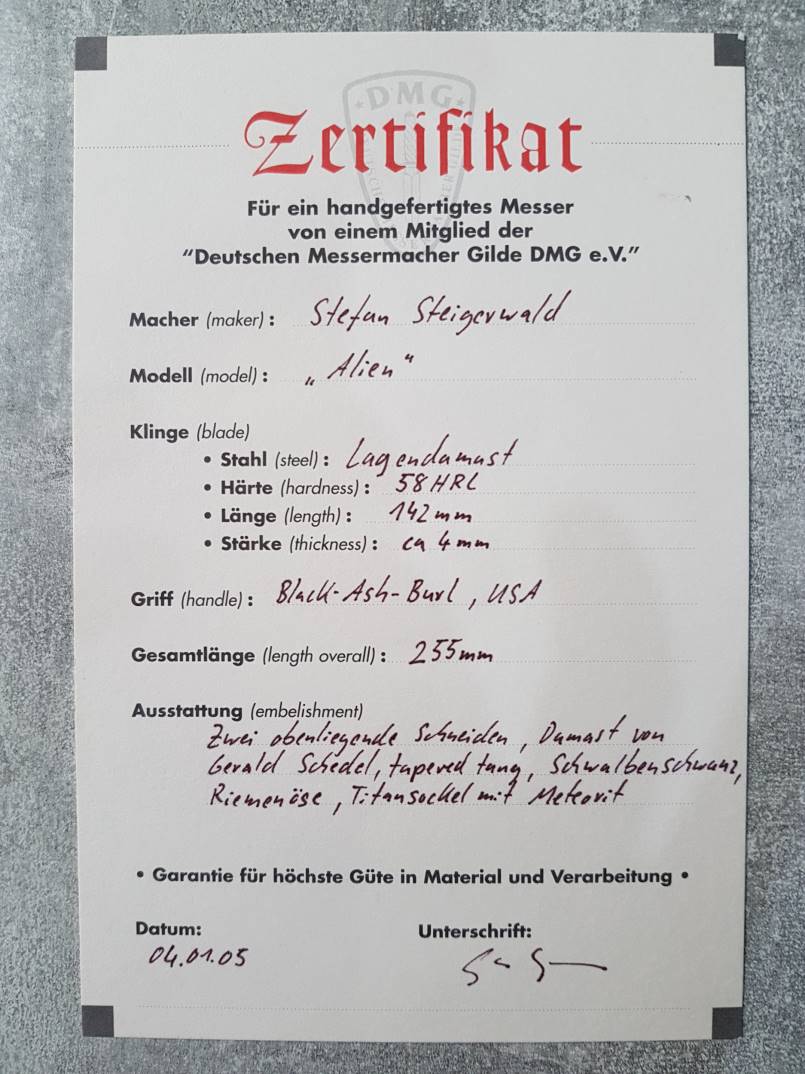 DMG
Zertifikat
Für ein handgefertigtes Messer
von einem Mitglied der
"Deutschen Messermacher Gilde DMG e.V."
Macher (maker): Stefan Steigerwald
Modell (model): „Alien"
Klinge (blade)
• Stahl (steel): Lagendamast
• Härte (hardness): 58HRC
• Länge (length): 142mm
• Stärke (thickness): ca 4mm
Griff (handle): Black-Ash-Burl, USA
Gesamtlänge (length overall): 255mm
Ausstattung (embelishment)
Zwei obenliegende Schneiden, Damast von
Gerald Schedel, tapered tang, Schwalbenschwanz,
Riemenöse, Titansockel mit Meteorit
• Garantie für höchste Güte in Material und Verarbeitung •
Datum: Unterschrift:
04.01.05